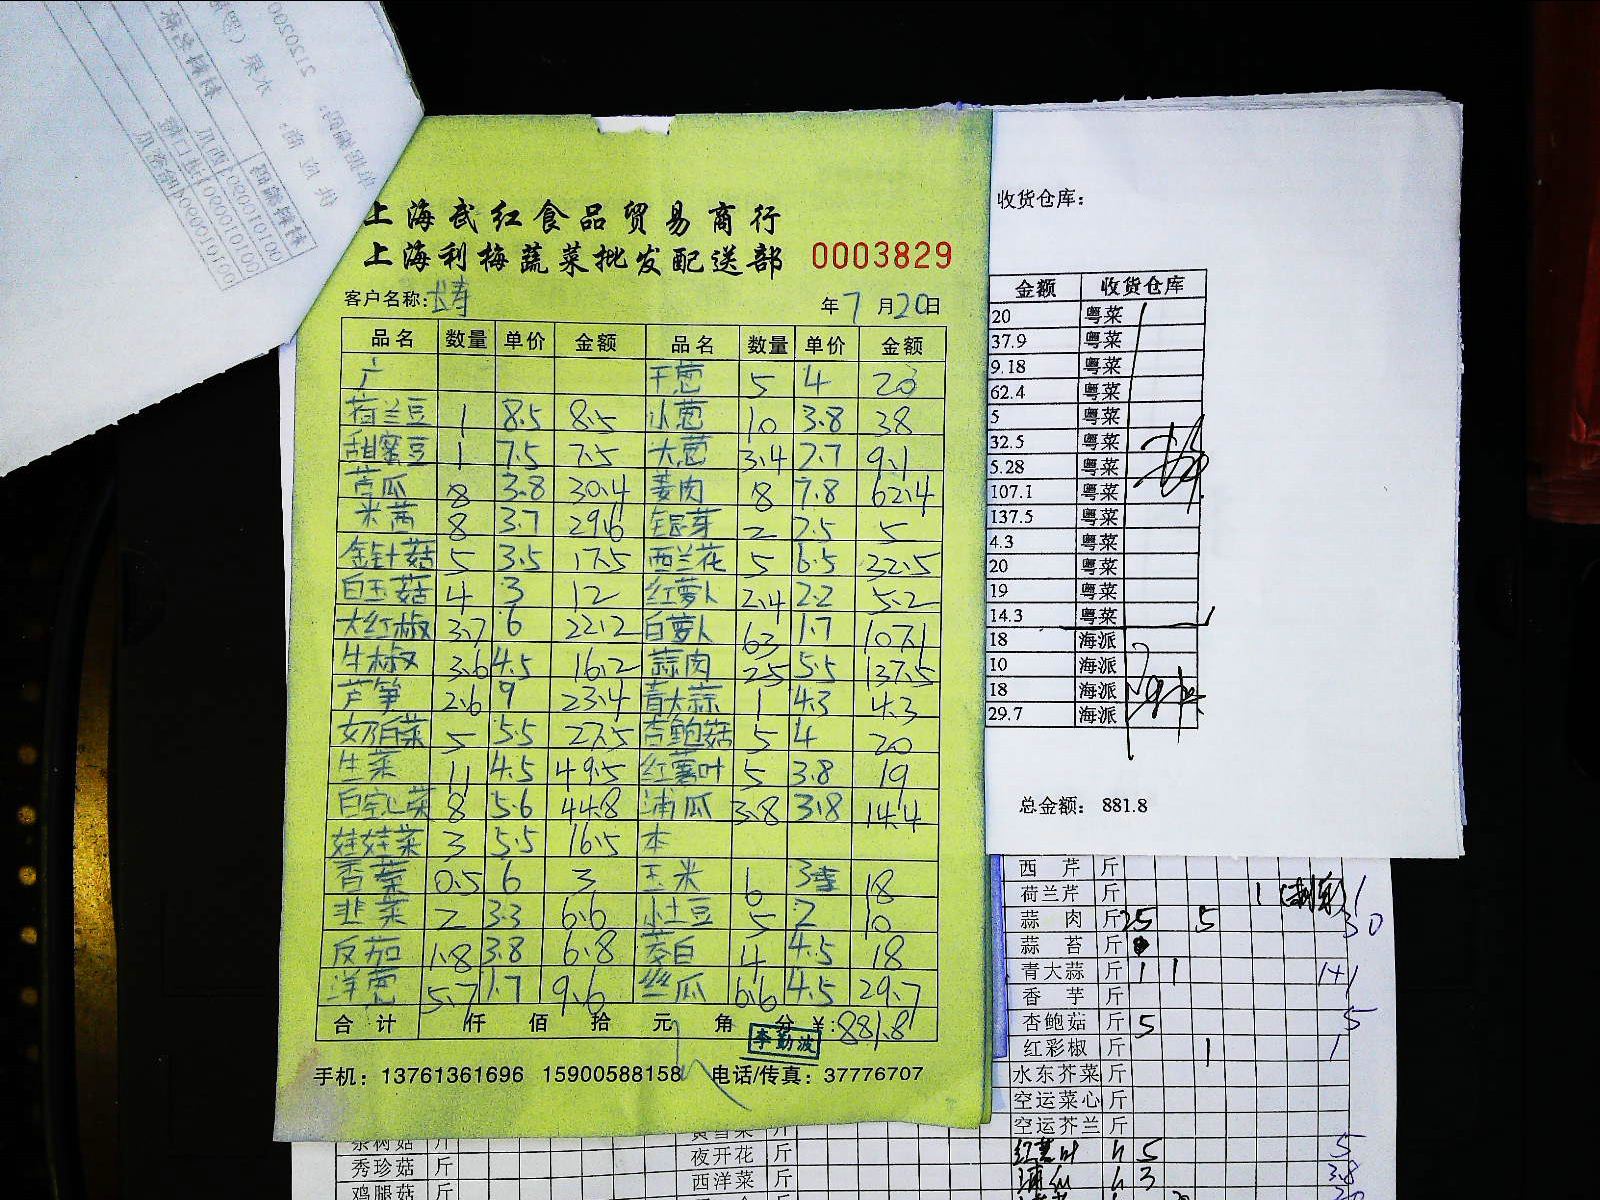 上海武红食品贸易商行
上海利梅蔬菜批发配送部 0003829
客户名称: 年7月20日
品名 数量 单价 金额 品名 数量 单价 金额
广 干葱 5 4 20
荷兰豆 1 8.5 8.5 小葱 10 3.8 38
甜蜜豆 1 7.5 7.5 大葱 3.4 2.7 9.1
苦瓜 8 3.8 30.4 姜肉 8 7.8 62.4
米苋 8 3.7 29.6 银芽 2 2.5 5
金针菇 5 3.5 17.5 西兰花 5 6.5 32.5
白玉菇 4 3 12 红萝卜 2.4 2.2 5.2
大红椒 3.7 6 22.2 白萝卜 63 1.7 107.1
牛椒 3.6 4.5 16.2 蒜肉 25 5.5 137.5
芦笋 2.6 9 23.4 青大蒜 1 4.3 4.3
奶白菜 5 5.5 27.5 杏鲍菇 5 4 20
生菜 11 4.5 49.5 红薯叶 5 3.8 19
白空心菜 8 5.6 44.8 浦瓜 3.8 3.8 14.4
娃娃菜 3 5.5 16.5 本
香菜 0.5 6 3 玉米 6 3 18
韭菜 2 3.3 6.6 小土豆 5 2 10
反茄 1.8 3.8 6.8 茭白 4 4.5 18
洋葱 5.7 1.7 9.6 丝瓜 6.6 4.5 29.7
合计 仟 佰 拾 元 角 分 ¥:881.8
李勤波
手机：13761361696 15900588158 电话/传真：37776707
收货仓库：
金额 收货仓库
20 粤菜
37.9 粤菜
9.18 粤菜
62.4 粤菜
5 粤菜
32.5 粤菜
5.28 粤菜
107.1 粤菜
137.5 粤菜
4.3 粤菜
20 粤菜
19 粤菜
14.3 粤菜
18 海派
10 海派
18 海派
29.7 海派
总金额： 881.8
西芹 斤
荷兰芹 斤 1 1
蒜肉 斤 25 5 30
蒜苔 斤
青大蒜 斤 1 1 1+1
香芋 斤
杏鲍菇 斤 5 5
红彩椒 斤 1 1
水东芥菜 斤
空运菜心 斤
空运芥兰 斤
红薯叶 5 5
浦瓜 3 3.8
茶树菇 斤
秀珍菇 斤 夜开花 斤
鸡腿菇 斤 西洋菜 斤